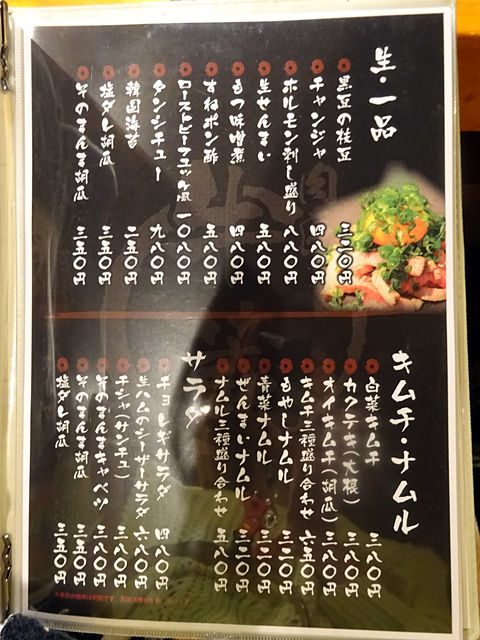 生・一品
黒豆の枝豆 三二〇円
チャンジャ 四八〇円
ホルモン刺し盛り 八八〇円
生せんまい 五八〇円
もつ味噌煮 四八〇円
すねポン酢 五八〇円
ローストビーフユッケ風 一〇八〇円
タンシチュー 九八〇円
韓国海苔 二五〇円
塩ダレ胡瓜 三五〇円
そのまんま胡瓜 三五〇円
キムチ・ナムル
白菜キムチ 三八〇円
カクテキ(大根) 三八〇円
オイキムチ(胡瓜) 三八〇円
キムチ三種盛り合わせ 六五〇円
もやしナムル 三二〇円
青菜ナムル 三二〇円
ぜんまいナムル 三二〇円
ナムル三種盛り合わせ 五八〇円
サラダ
チョレギサラダ 四八〇円
生ハムのシーザーサラダ 六八〇円
チシャ(サンチュ) 三八〇円
そのまんまキャベツ 三八〇円
そのまんま胡瓜 三五〇円
塩ダレ胡瓜 三五〇円